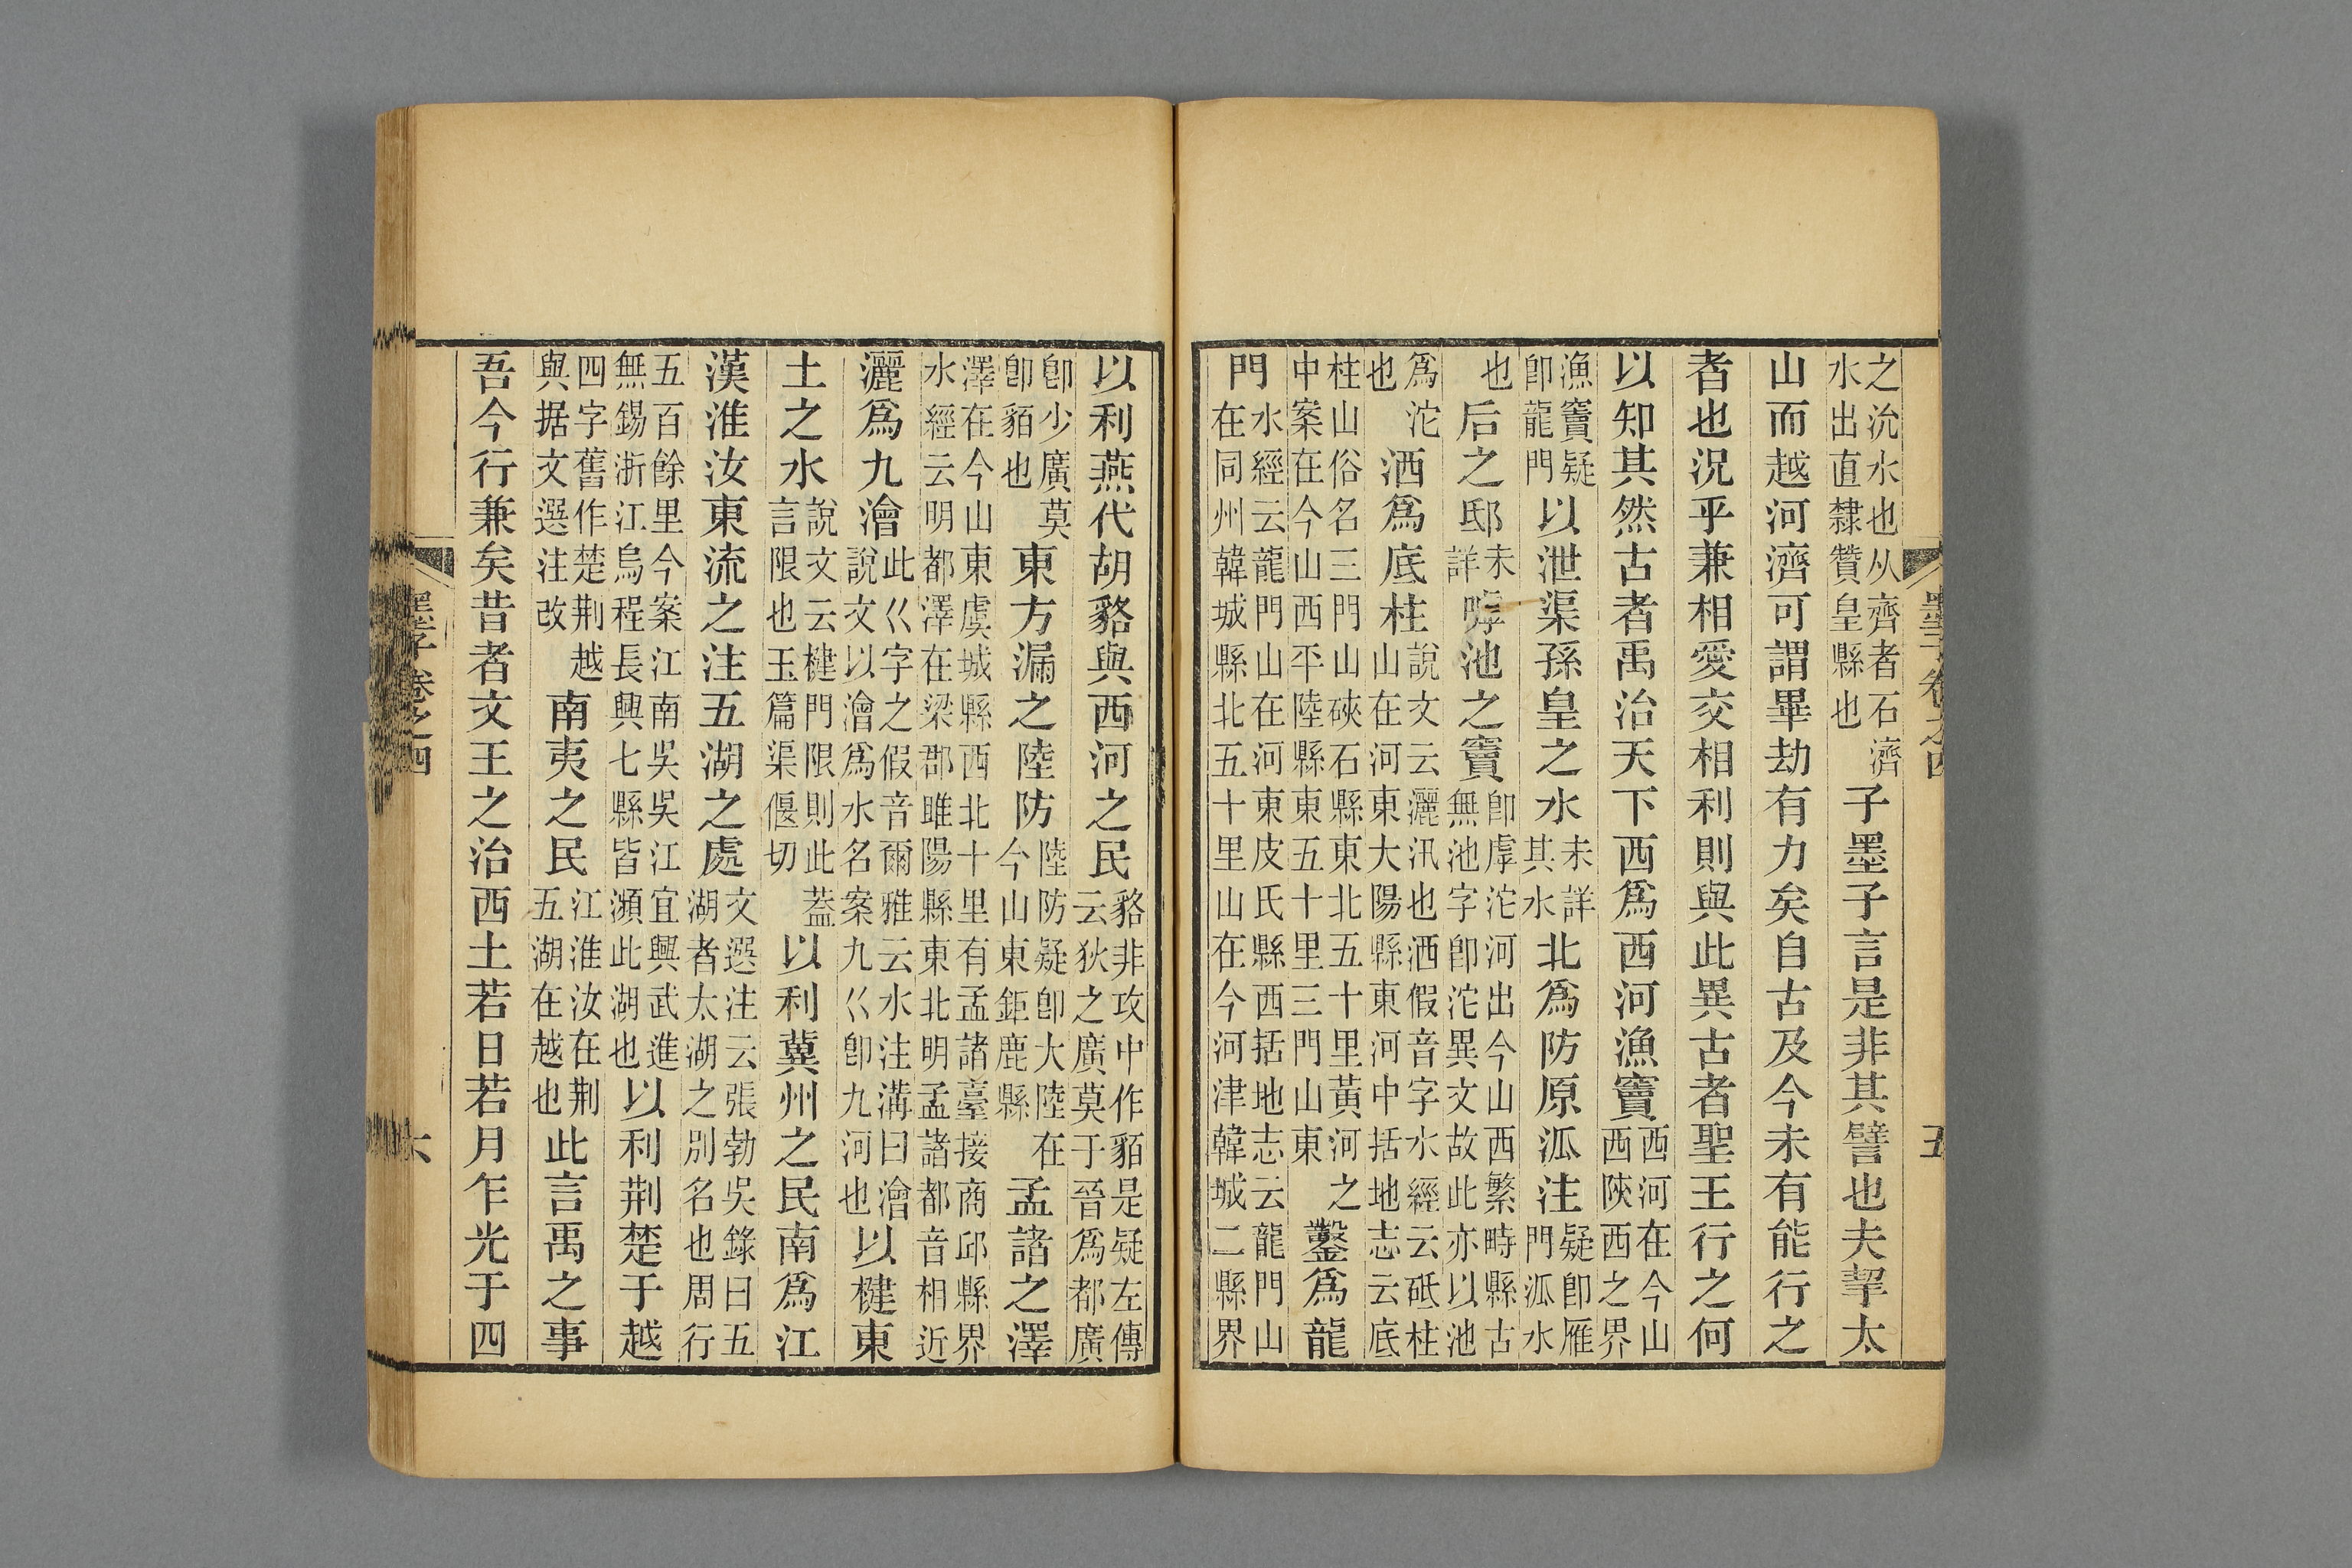 墨子卷之四 五
之沇水也从齊者石濟
水出直隸贊皇縣也
子墨子言是非其譬也夫挈太
山而越河濟可謂畢劫有力矣自古及今未有能行之
者也況乎兼相愛交相利則與此異古者聖王行之何
以知其然古者禹治天下西爲西河漁竇
西河在今山
西陝西之界
漁竇疑
卽龍門
以泄渠孫皇之水
未詳
其水
北爲防原泒注
疑卽雁
門泒水
也
后之邸
未
詳
嘑池之竇
卽虖沱河出今山西繁畤縣古
無池字卽沱異文故此亦以池
爲沱
也
洒爲底柱
說文云灑汛也洒假音字水經云砥柱
山在河東大陽縣東河中括地志云底
柱山俗名三門山硤石縣東北五十里黃河之
中案在今山西平陸縣東五十里三門山東
鑿爲龍
門
水經云龍門山在河東皮氏縣西括地志云龍門山
在同州韓城縣北五十里山在今河津韓城二縣界
以利燕代胡貉與西河之民
貉非攻中作貊是疑左傳
云狄之廣莫于晉爲都廣
卽少廣莫
卽貊也
東方漏之陸防
陸防疑卽大陸在
今山東鉅鹿縣
孟諸之澤
澤在今山東虞城縣西北十里有孟諸臺接商邱縣界
水經云明都澤在梁郡雎陽縣東北明孟諸都音相近
灑爲九澮
此巜字之假音爾雅云水注溝曰澮
說文以澮爲水名案九巜卽九河也
以楗東
土之水
說文云楗門限則此蓋
言限也玉篇渠偃切
以利冀州之民南爲江
漢淮汝東流之注五湖之處
文選注云張勃吳錄曰五
湖者太湖之別名也周行
五百餘里今案江南吳吳江宜興武進
無錫浙江烏程長興七縣皆瀕此湖也
以利荆楚于越
四字舊作楚荆越
與据文選注改
南夷之民
江淮汝在荆
五湖在越也
此言禹之事
吾今行兼矣昔者文王之治西土若日若月乍光于四
墨子卷之四 六